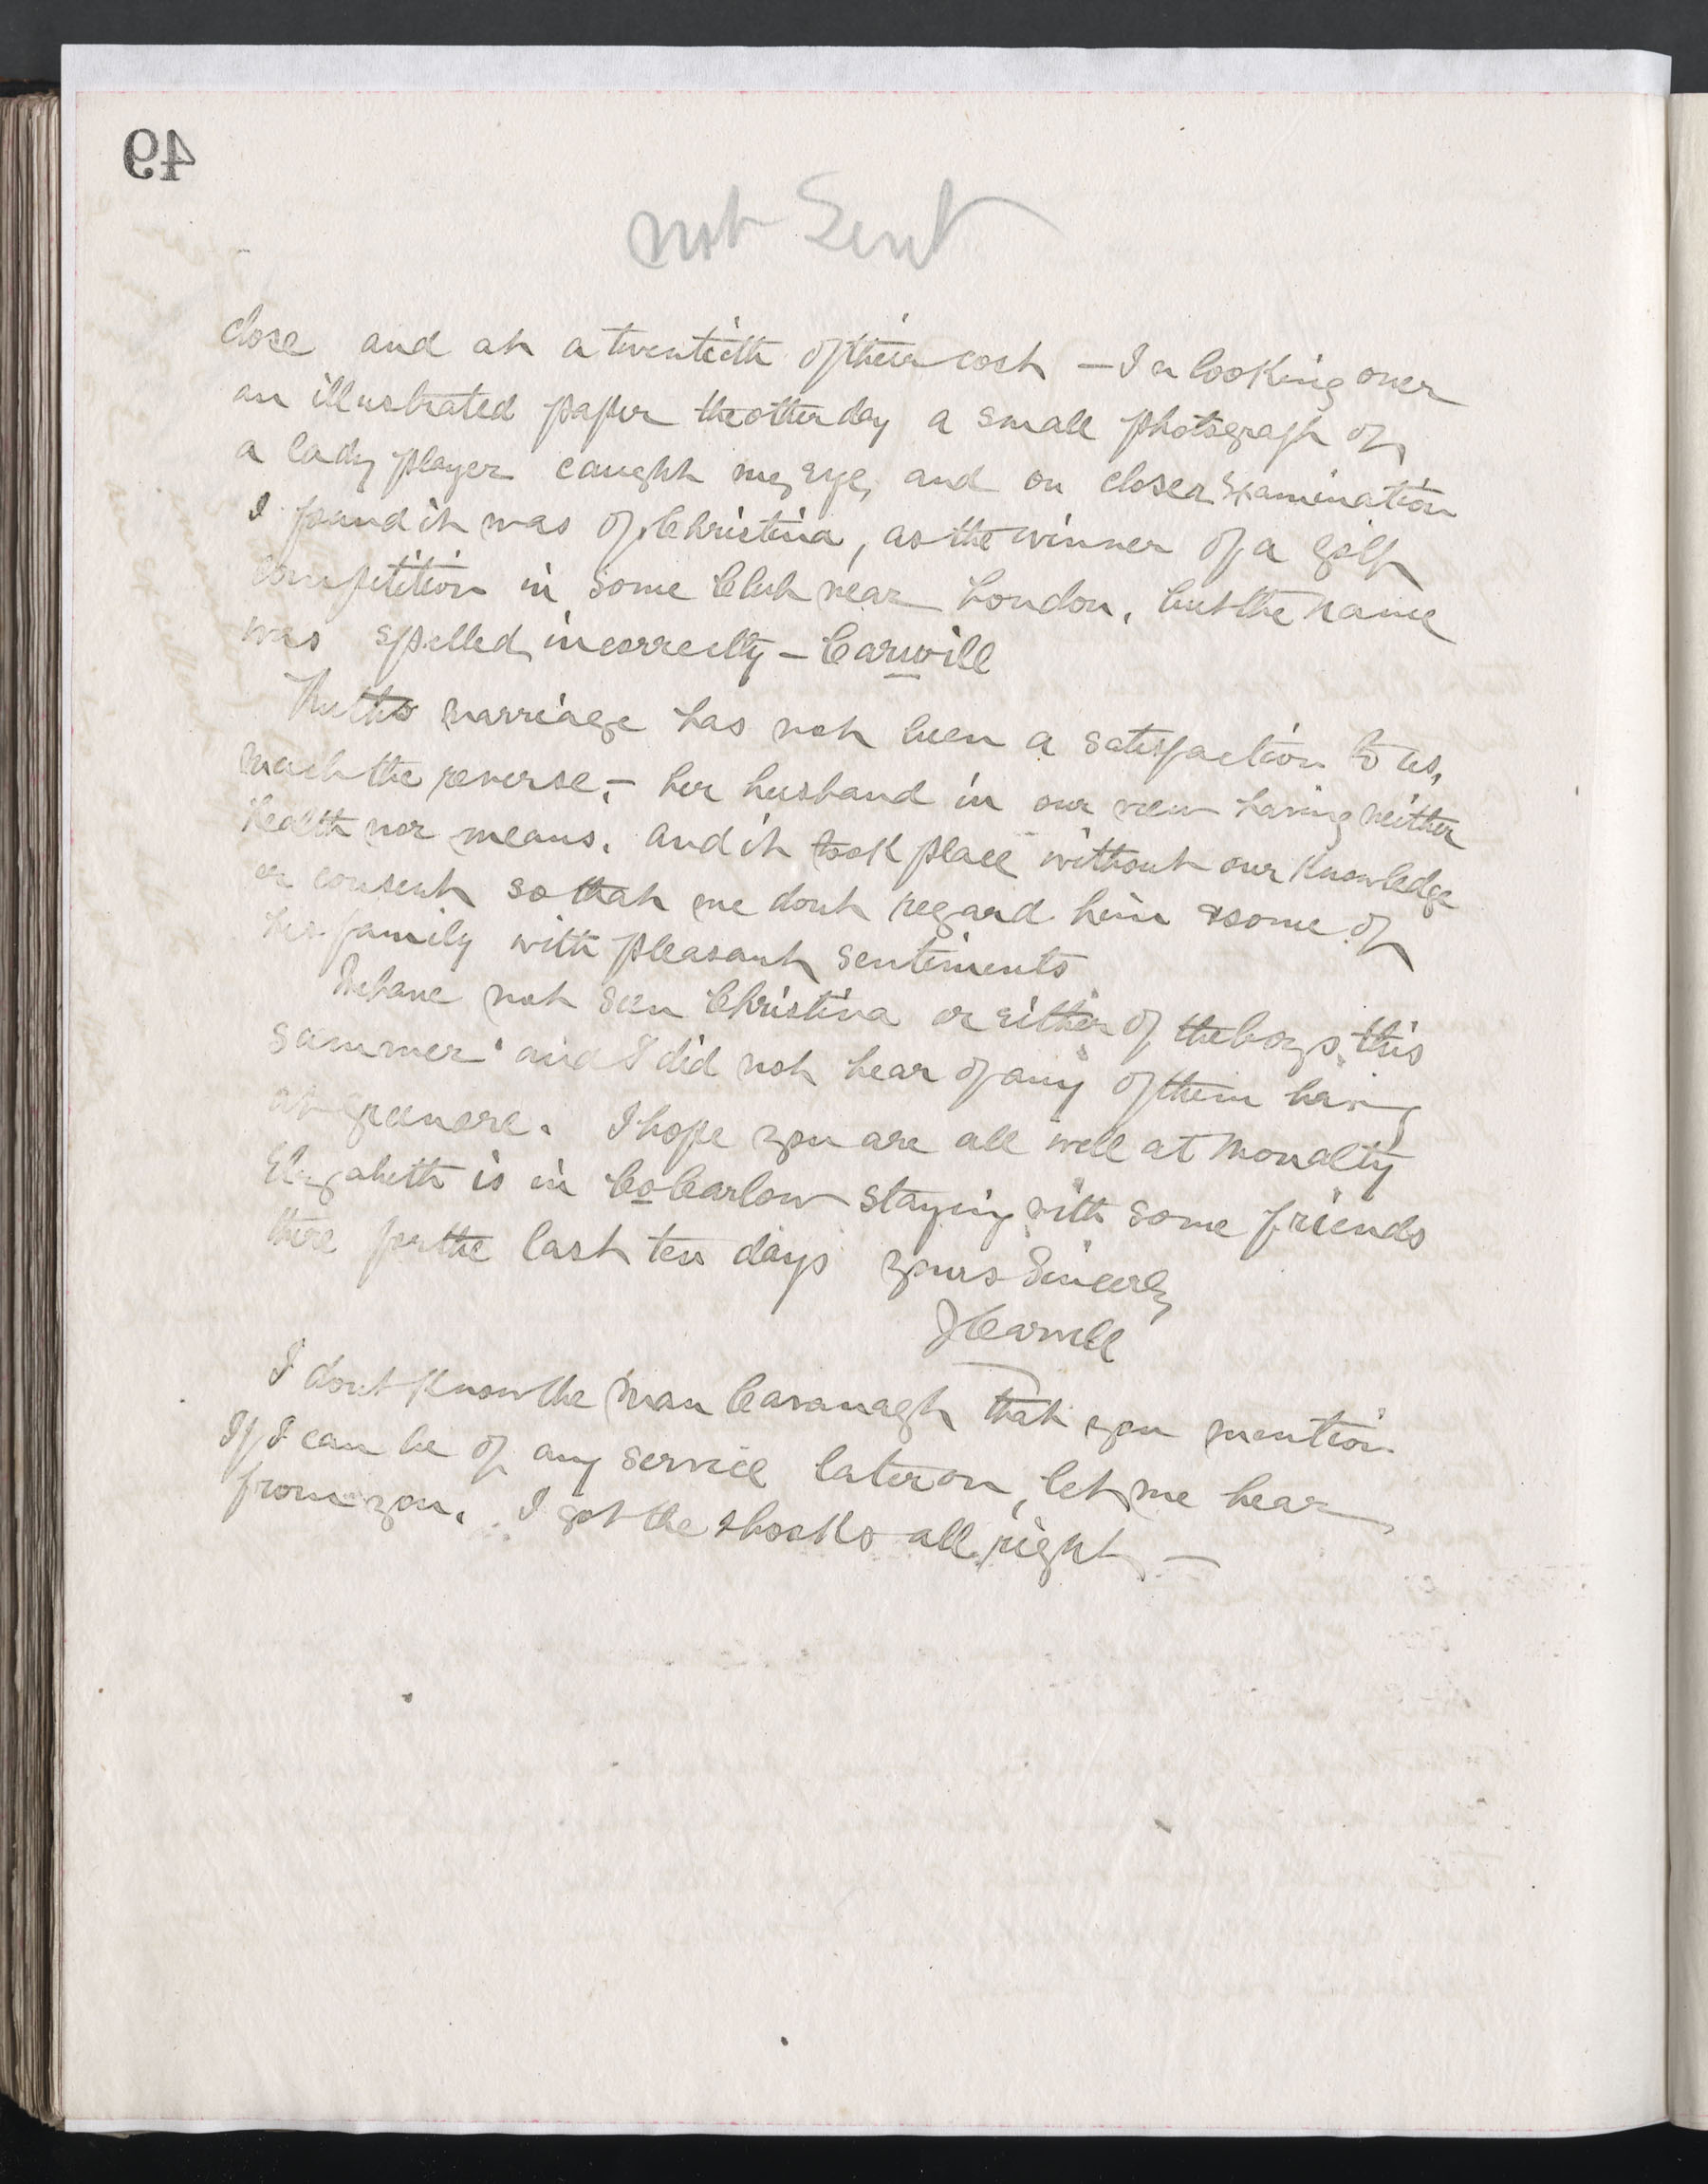 49
not Sent
close and at a twentieth of their cost — In looking over
an illustrated paper the other day a small photograph of
a lady player caught my eye, and on closer examination
I found it was of Christina, as the winner of a golf
competition in some Club near London, but the name
was spelled incorrectly – Carwill
Ruths marriage has not been a satisfaction to us,
much the reverse, – her husband in our view having neither
health nor means. and it took place without our knowledge
or consent so that we dont regard him & some of
his family with pleasant sentiments
We have not seen Christina or either of the boys this
summer and I did not hear of any of them being
at Greenore. I hope you are all well at Monalty
Elizabeth is in Co Carlow staying with some friends
there for the last ten days yours Sincerly
J Carvill
I dont know the man Cavanagh that you mention
If I can be of any service later on, let me hear
from you. I got the shooks all right —